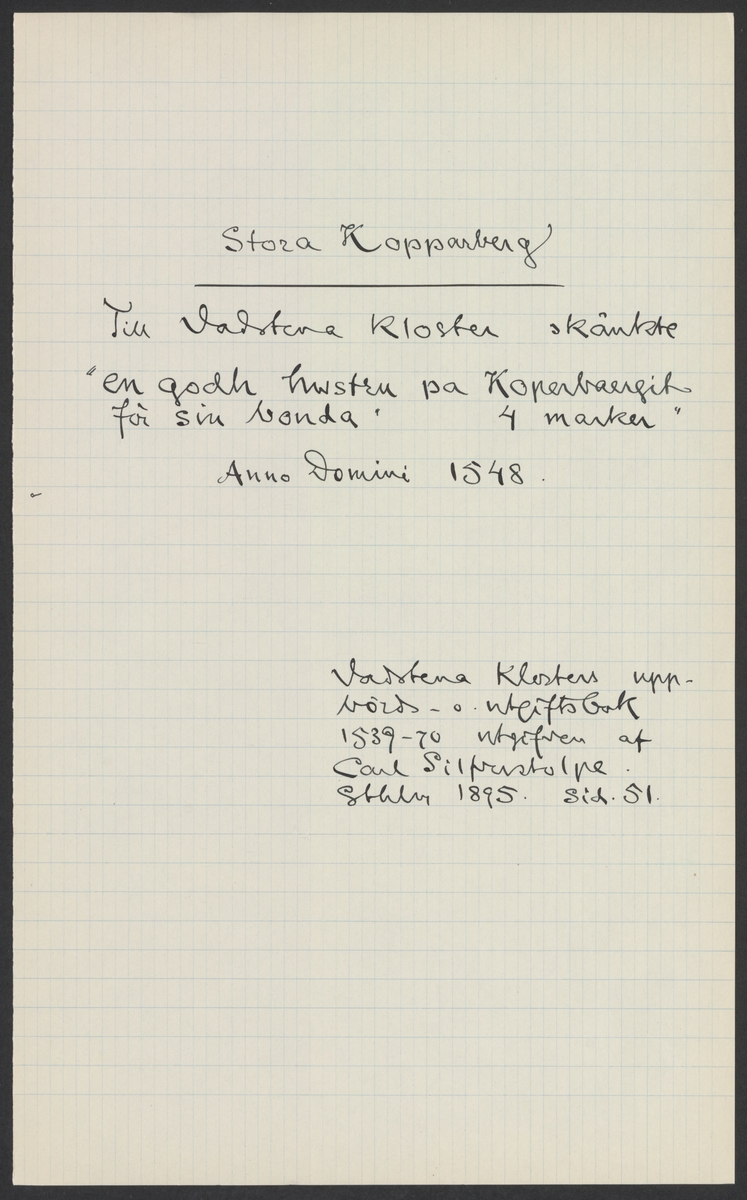 Stora Kopparberg
Till Vadstena Kloster skänkte
"en godh hwstru pa Koperbaergit
för sin bonda' 4 marker"
Anno Domini 1548.
Vadstena Klosters upp-
börds- o. utgiftsbok
1539-70 utgifven af
Carl Silfverstolpe.
Sthlm 1895. Sid. 51.